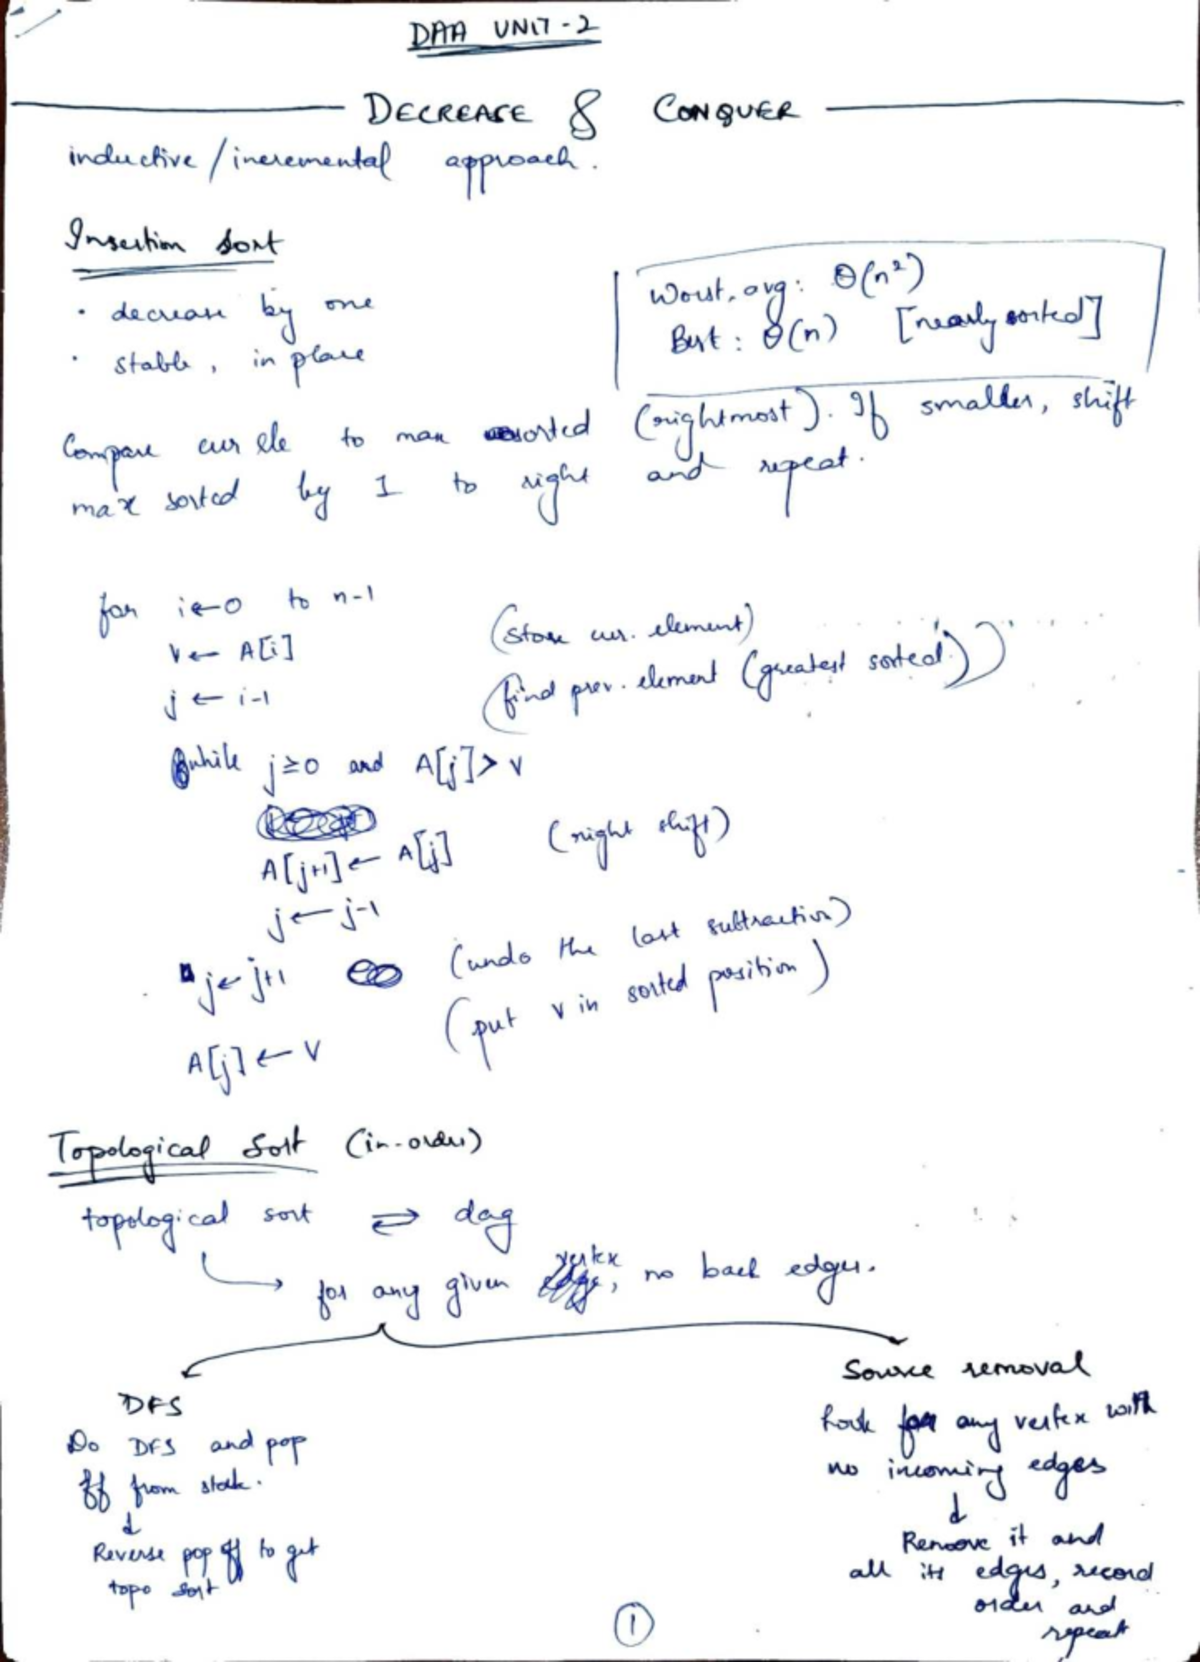 DAA UNIT-2
DECREASE & CONQUER
inductive/incremental approach.
Insertion Sort
• decrease by one
• stable, in place
Worst, avg: Θ(n²)
Best: Θ(n) [nearly sorted]
Compare cur ele to max sorted (rightmost). If smaller, shift
max sorted by 1 to right and repeat.
for i←0 to n-1
v← A[i] (store cur. element)
j ← i-1 (find prev. element (greatest sorted))
while j≥0 and A[j]> v
A[j+1]← A[j] (right shift)
j← j-1
j← j+1 (undo the last subtraction)
A[j]← v (put v in sorted position)
Topological Sort (in-order)
topological sort ⇌ dag
for any given vertex, no back edges.
DFS
Do DFS and pop
off from stack.
↓
Reverse pop off to get
topo sort
Source removal
Look for any vertex with
no incoming edges
↓
Remove it and
all its edges, record
order and
repeat
1